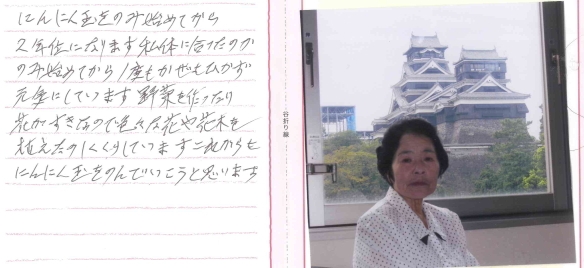 にんにん玉をのみ始めてから
2年位になります私体に合たのか
のみ始めてから1度もかぜもひかず
元気にしています野菜を作ったり
花がすきなので色々な花や花木を
植えたのしくくらしていますこれからも
にんにん玉をのんでいこうと思います
谷折り線